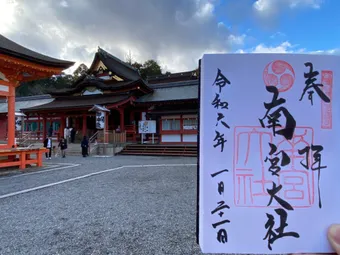 奉拝
南宮大社
令和六年一月二十一日